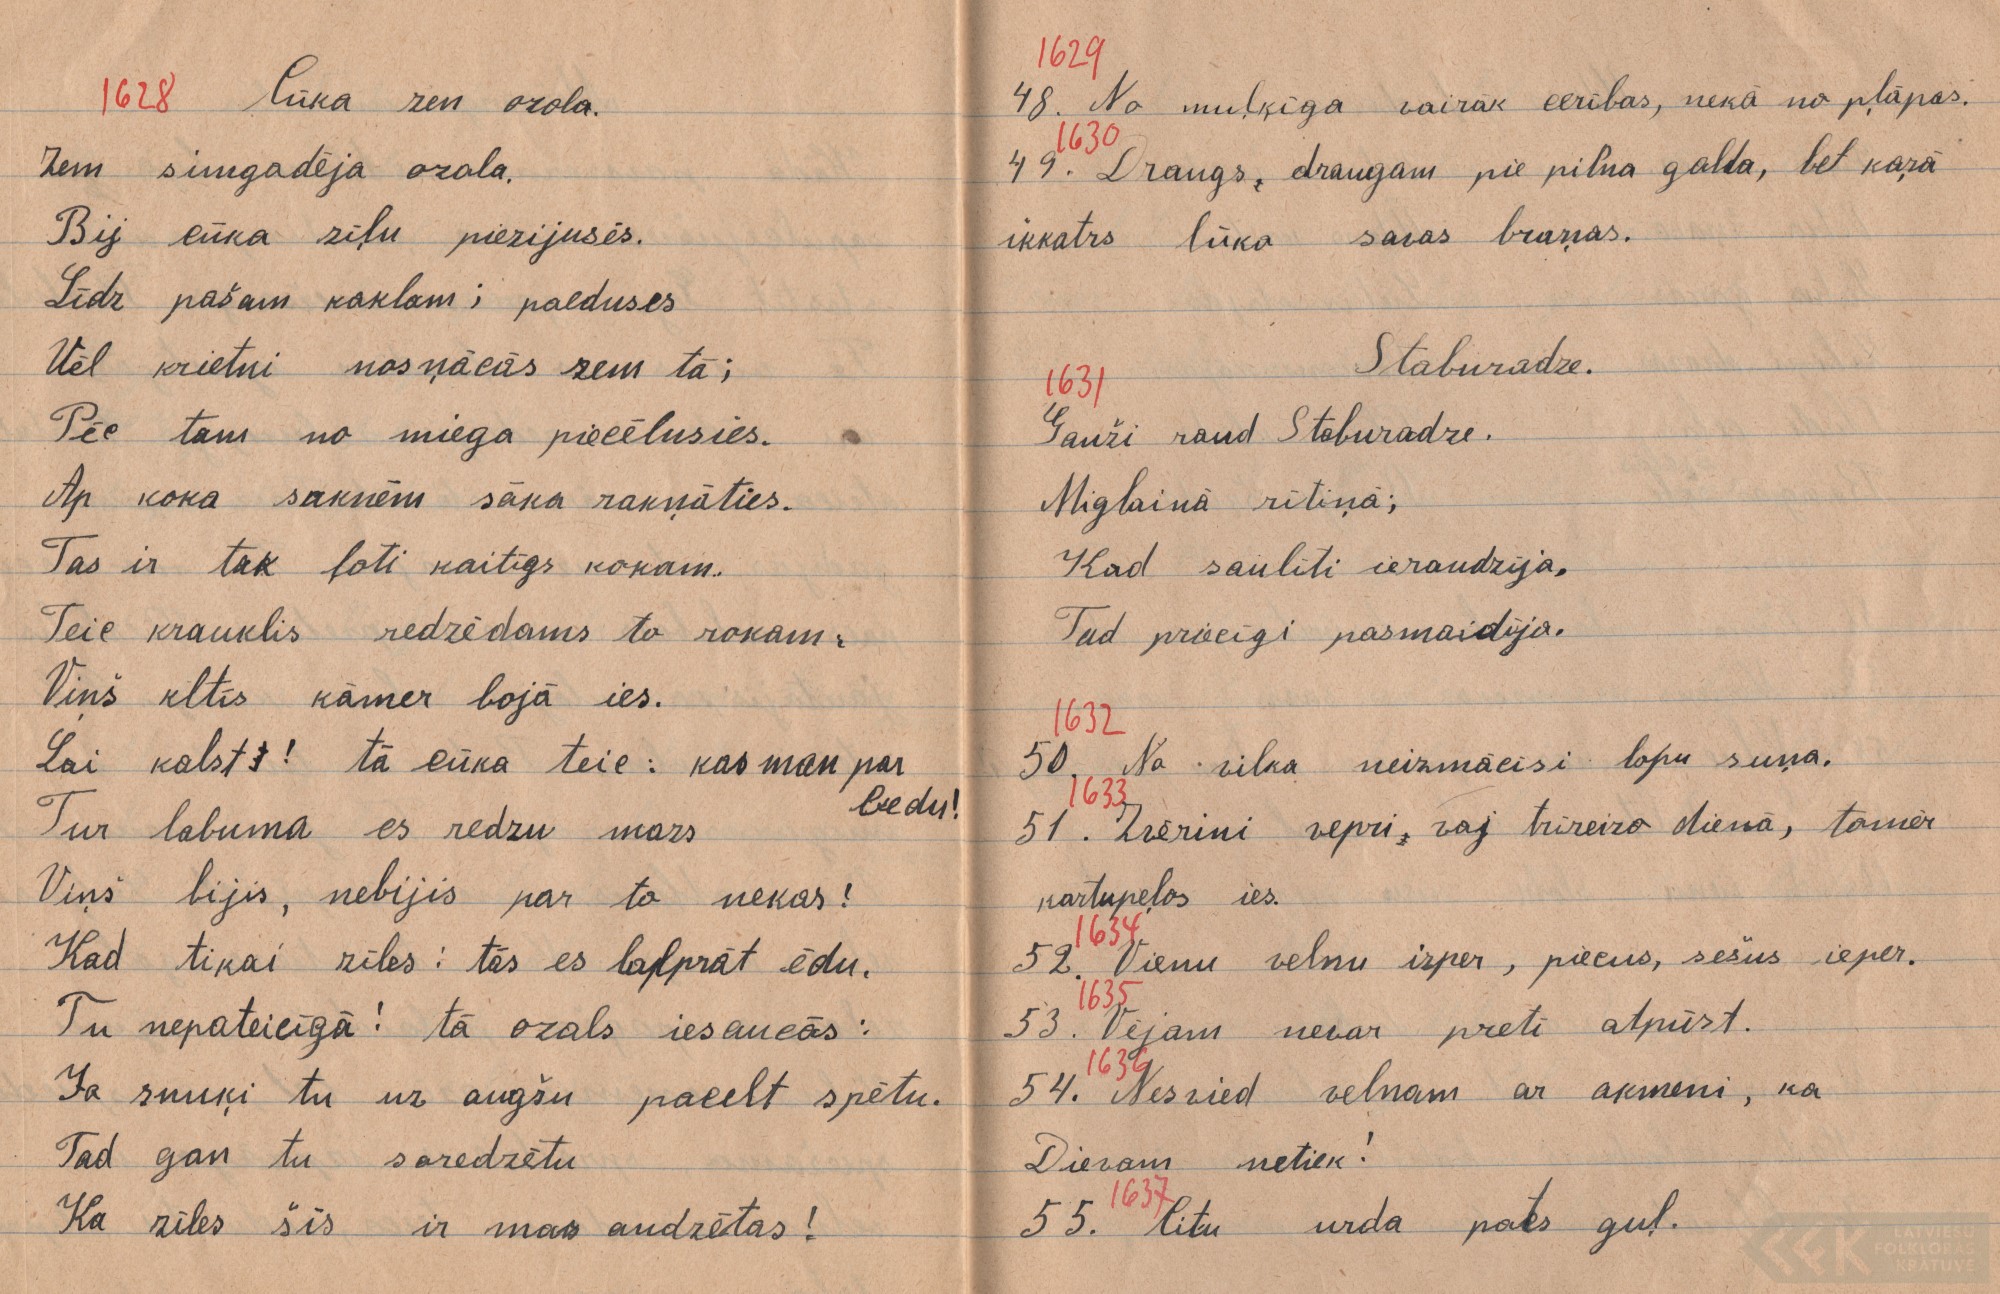 1628 Cūka zen ozola.
Zem simgadēja ozola.
Bij cūka zīļu pierijusēs.
Līdz pašam kaklam; paēduses
Vēl krietni nosņācās zem tā;
Pēc tam no miega piecēlusies.
Ap koka saknēm sāka rakņāties.
Tas ir tak ļoti kaitīgs kokam.
Teic krauklis redzēdams to rokam:
Viņš kltīs kāmer bojā ies.
Lai kalst! tā cūka teic: kas man par
bedu!
Tur labuma es redzu mazs
Viņš bijis, nebijis par to nekas!
Kad tikai zīles: tās es labprāt ēdu.
Tu nepateicīgā! tā ozols iesaucās:
Ja snuķi tu uz augšu pacelt spētu.
Tad gan tu saredzētu
Ka zīles šīs ir man audzētas!
1629
48. No muļķīga vairāk cerības, nekā no pļāpas.
1630
49. Draugs, draugam pie pilna galda, bet kaŗā
ikkatrs lūko savas braņas.
Staburadze.
1631
Gauži raud Staburadze.
Miglainā rītiņā;
Kad saulīti ieraudzīja.
Tad priecīgi pasmaidīja.
1632
50. No vilka neizmācīsi lopu suņa.
1633
51. Zvērini vepri, vaj trīreiza dienā, tomēr
kartupeļos ies.
1634
52. Vienu velnu izper, piecus, sešus ieper.
1635
53. Vējam nevar pretī atpūst.
1636
54. Nesvied velnam ar akmeni, ka
Dievam netiek!
1637
55. Citu urda pats guļ.
LFK
LATVIEŠU
FOLKLORAS
KRĀTUVE